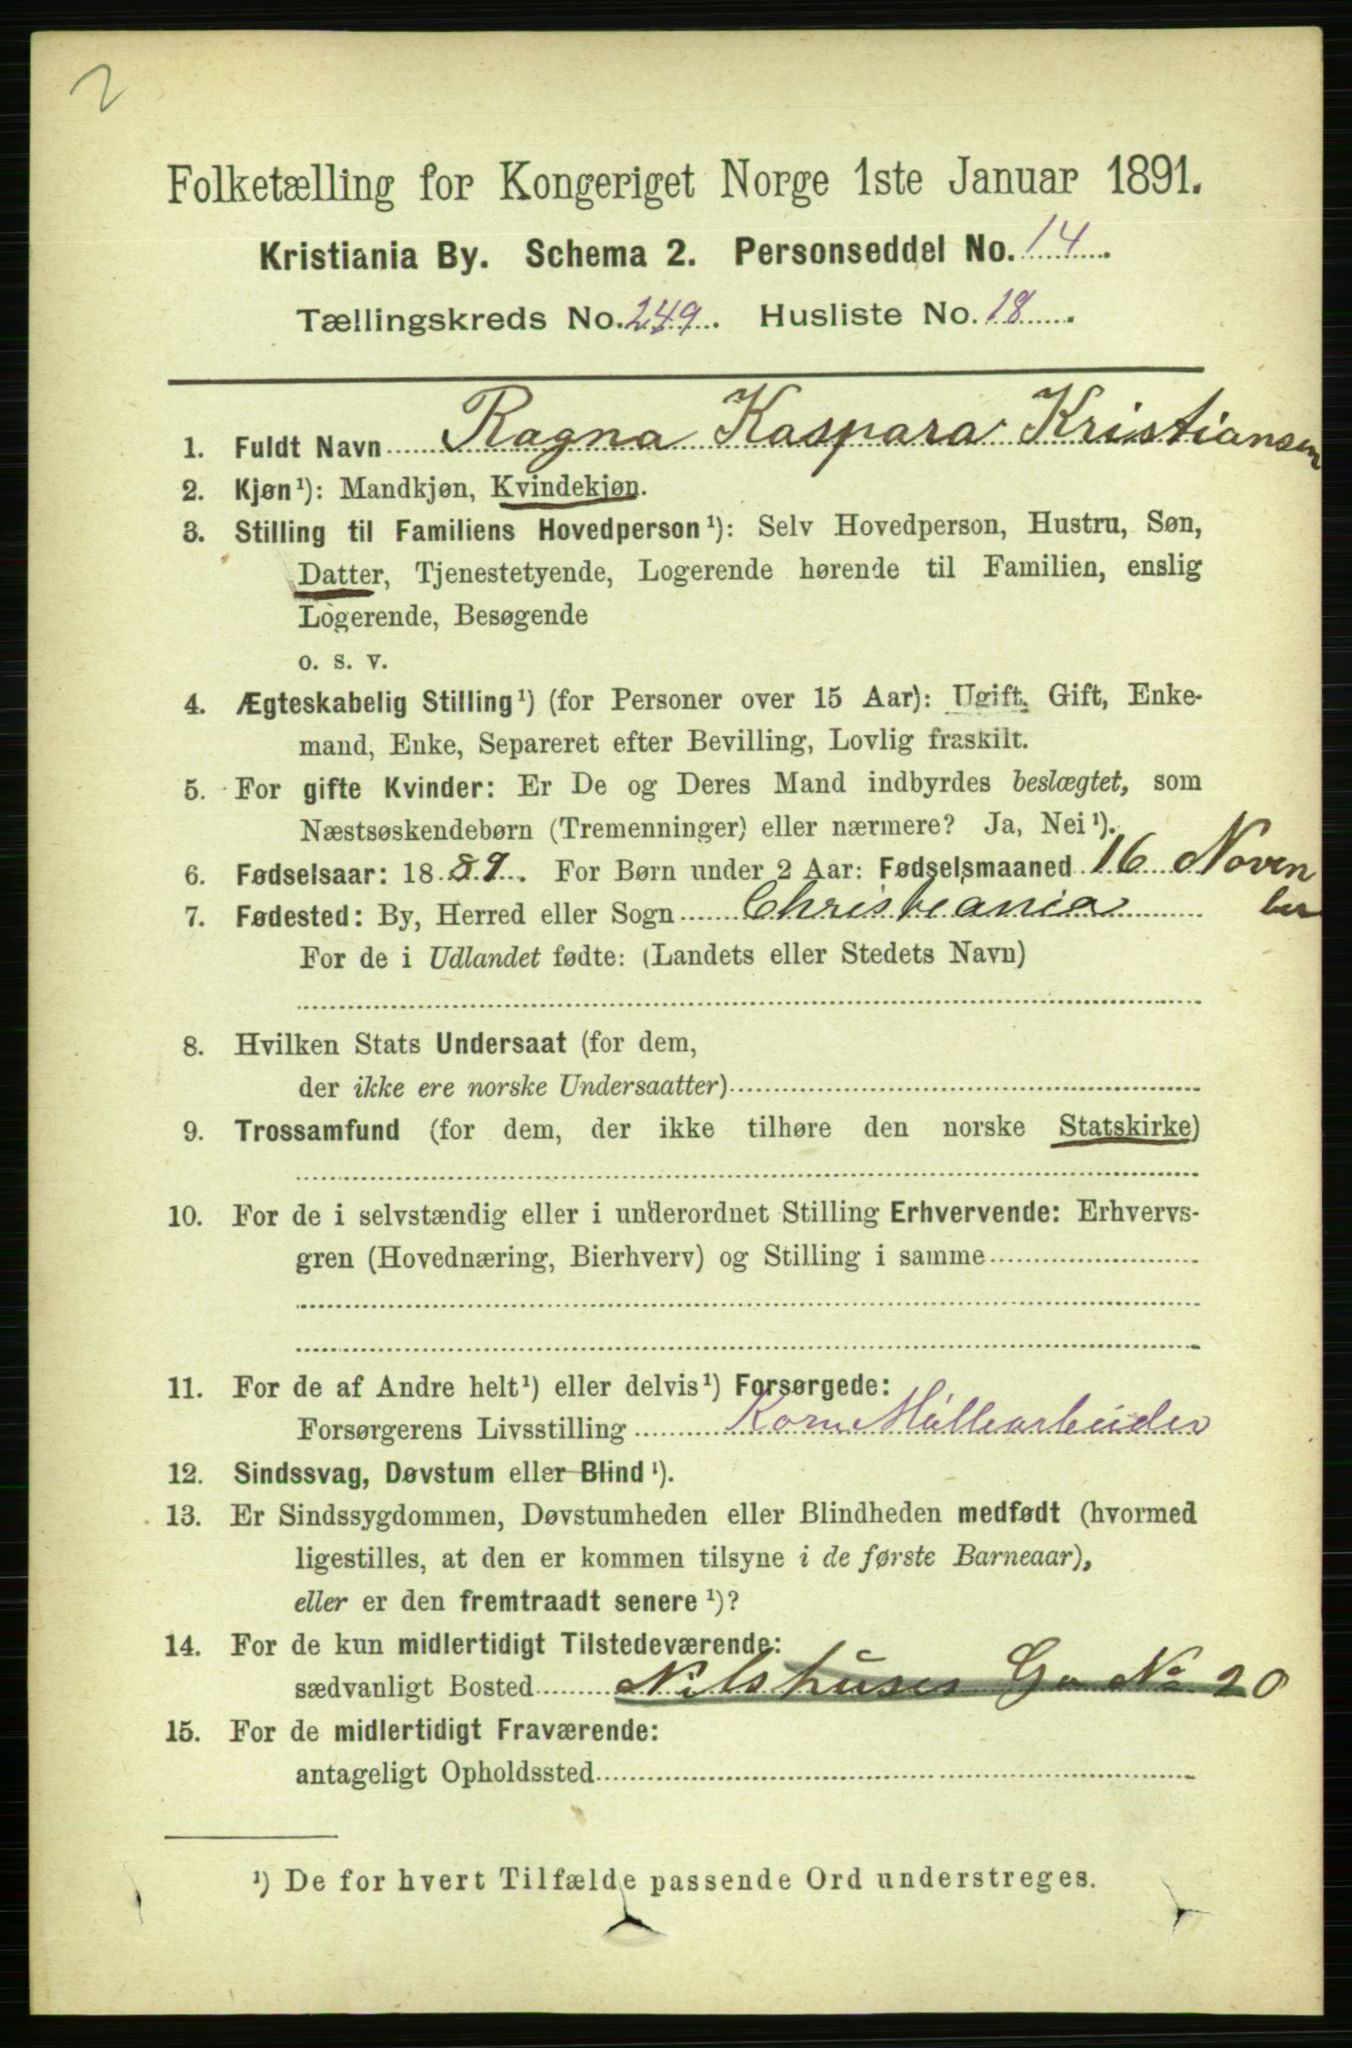 2
Folketælling for Kongeriget Norge 1ste Januar 1891.
Kristiania By. Schema 2. Personseddel No. 14.
Tællingskreds No. 249. Husliste No. 18.
1. Fuldt Navn Ragna Kaspara Kristiansen
2. Kjøn¹): Mandkjøn, Kvindekjøn.
3. Stilling til Familiens Hovedperson¹): Selv Hovedperson, Hustru, Søn,
Datter, Tjenestetyende, Logerende hørende til Familien, enslig
Logerende, Besøgende
o. s. v.
4. Ægteskabelig Stilling¹) (for Personer over 15 Aar): Ugift, Gift, Enke-
mand, Enke, Separeret efter Bevilling, Lovlig fraskilt.
5. For gifte Kvinder: Er De og Deres Mand indbyrdes beslægtet, som
Næstsøskendebørn (Tremenninger) eller nærmere? Ja, Nei¹).
6. Fødselsaar: 1889. For Børn under 2 Aar: Fødselsmaaned 16 Novem
ber
7. Fødested: By, Herred eller Sogn Christiania
For de i Udlandet fødte: (Landets eller Stedets Navn)
8. Hvilken Stats Undersaat (for dem,
der ikke ere norske Undersaatter)
9. Trossamfund (for dem, der ikke tilhøre den norske Statskirke)
10. For de i selvstændig eller i underordnet Stilling Erhvervende: Erhvervs-
gren (Hovednæring, Bierhverv) og Stilling i samme
11. For de af Andre helt¹) eller delvis¹) Forsørgede:
Forsørgerens Livsstilling Korn Møllearbeider
12. Sindssvag, Døvstum eller Blind¹).
13. Er Sindssygdommen, Døvstumheden eller Blindheden medfødt (hvormed
ligestilles, at den er kommen tilsyne i de første Barneaar),
eller er den fremtraadt senere¹)?
14. For de kun midlertidigt Tilstedeværende:
sædvanligt Bosted Nilshuses Ga No 20
15. For de midlertidigt Fraværende:
antageligt Opholdssted
¹) De for hvert Tilfælde passende Ord understreges.